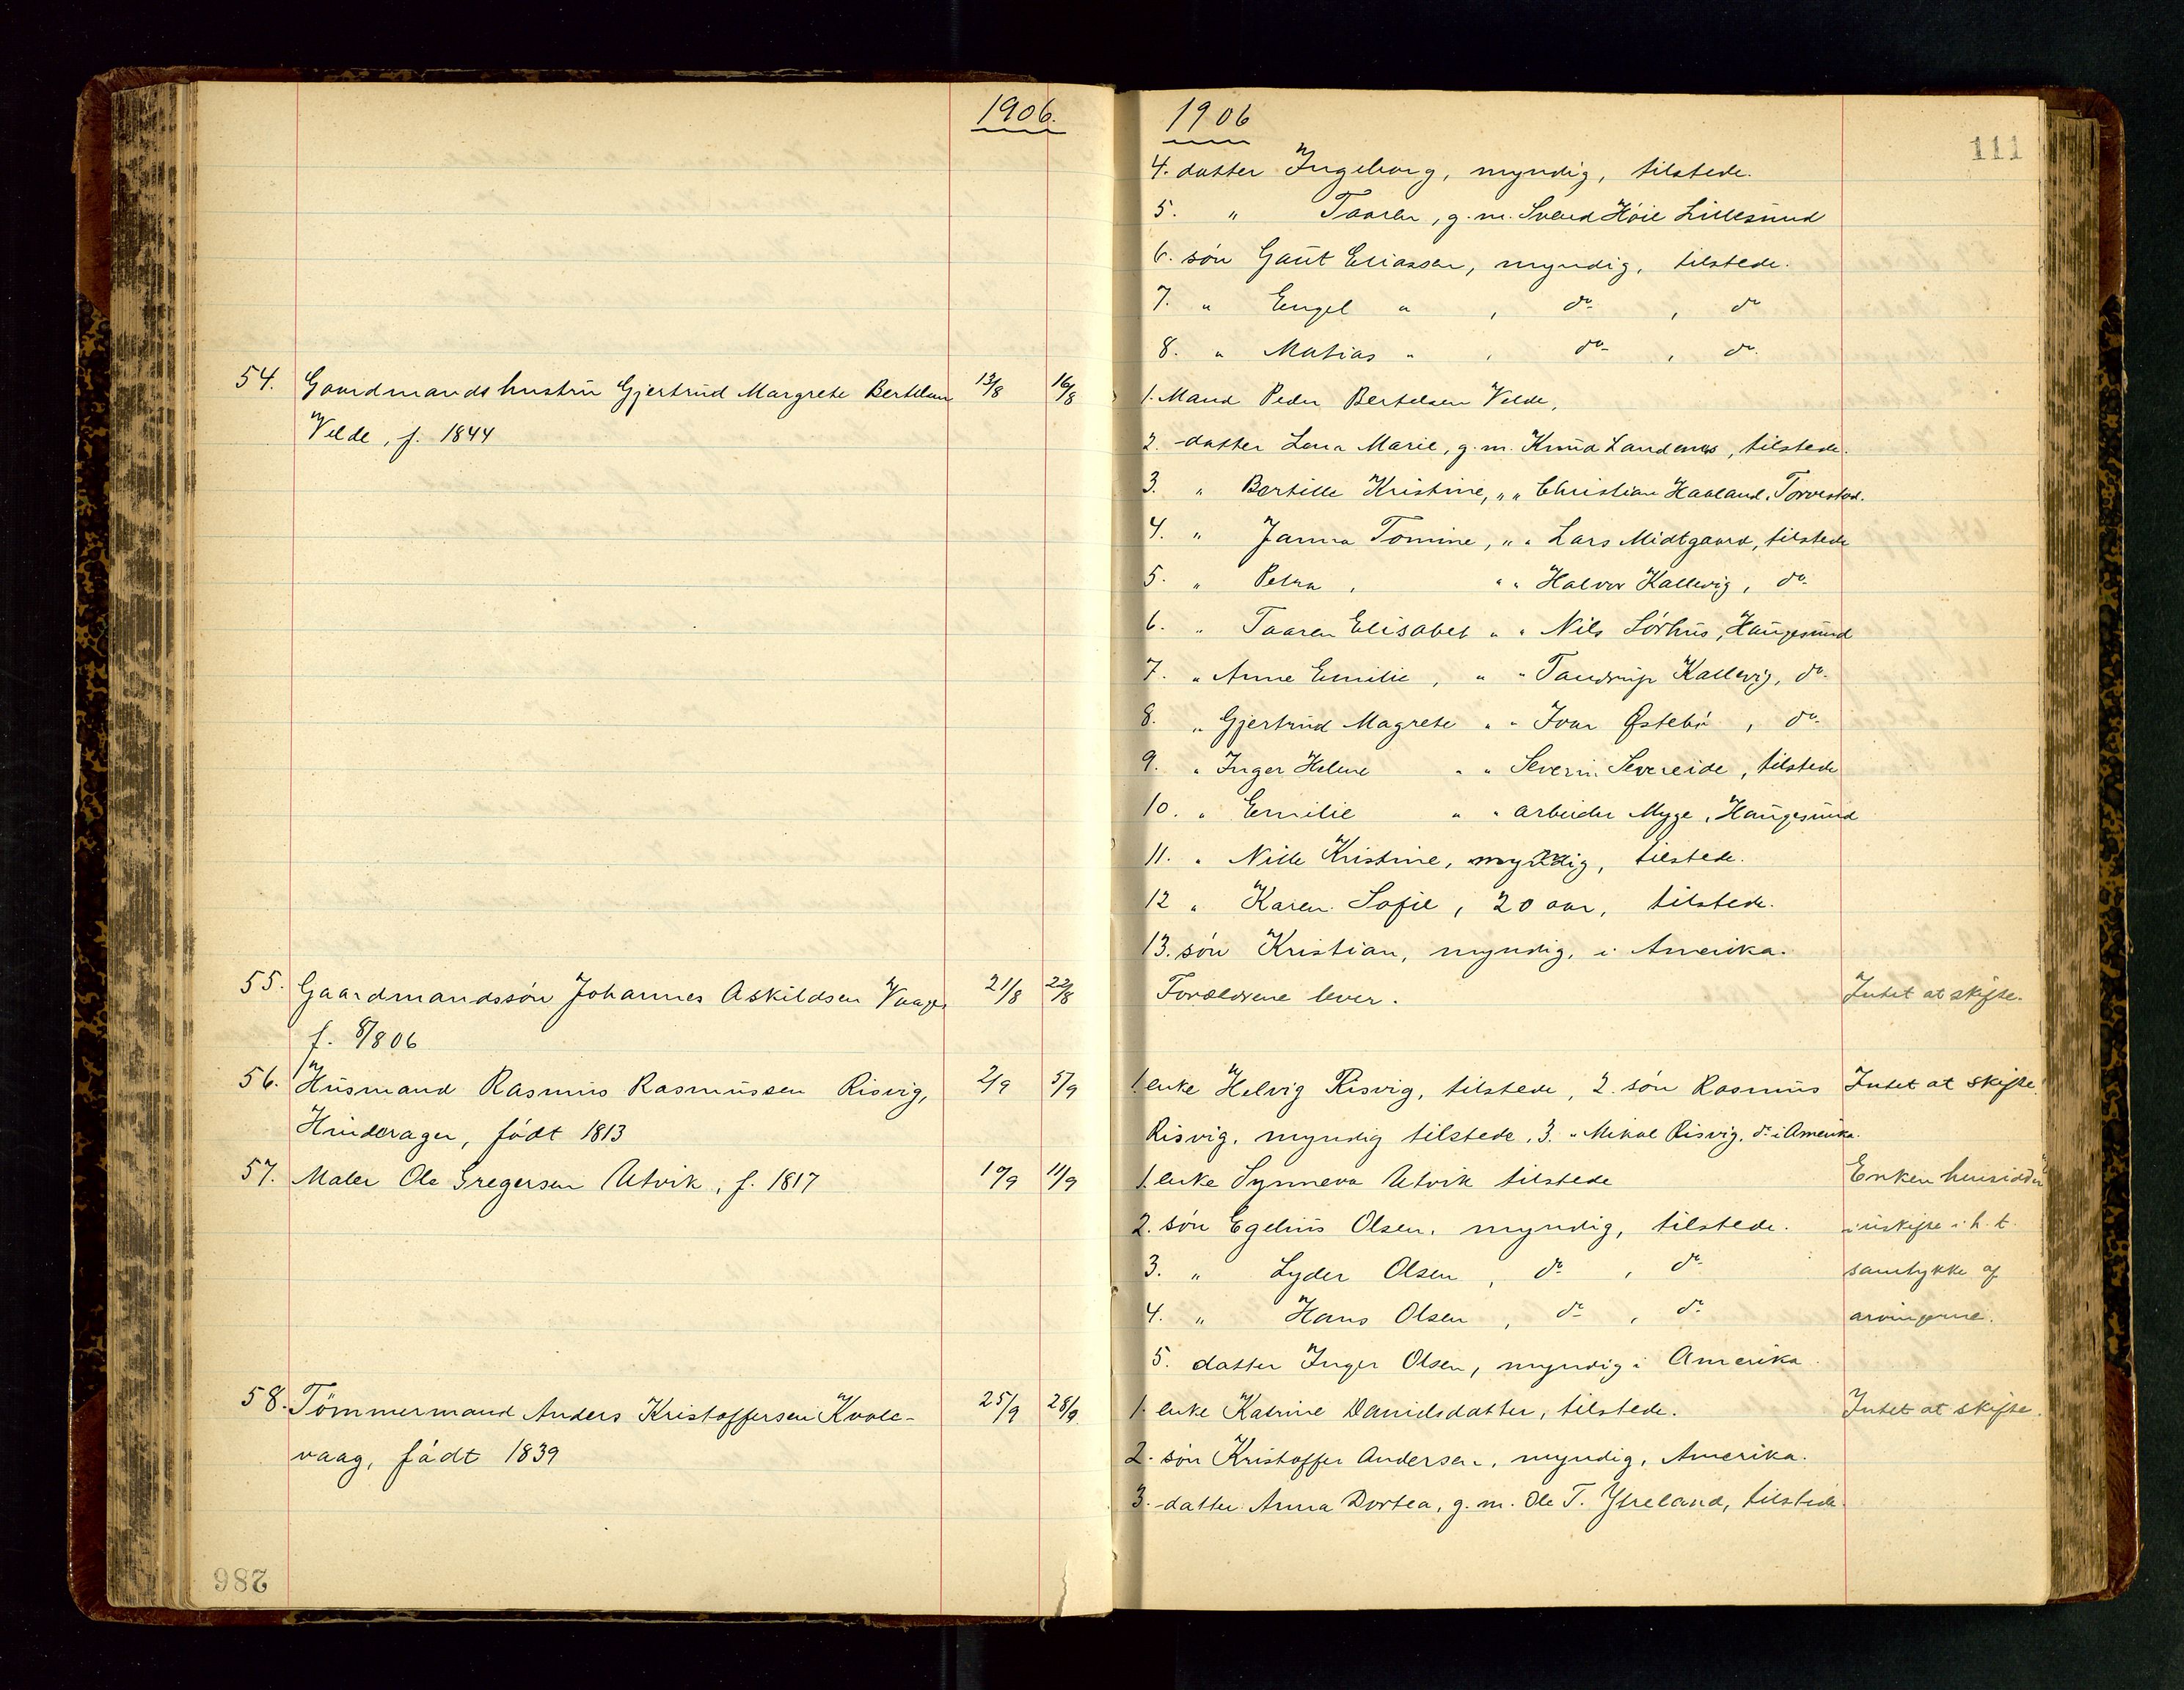 1906.
54. Gaardmandshustru Gjertrud Margrete Bertelsen 13/8 16/8
Velde, f. 1844
55. Gaardmandssøn Johannes Askildsen Vaage 21/8 22/8
f. 8/8 06
56. Husmand Rasmus Rasmussen Risvig, 2/9 5/9
Hinderager, født 1813
57. Maler Ole Gregersen Utvik, f. 1817 10/9 11/9
58. Tömmermand Anders Kristoffersen Kvale- 25/9 28/9
vaag, født 1839
286
1906
111
4. datter Ingeborg, myndig, tilstede.
5. " Taaren, g. m. Svend Høie Lillesund
6. søn Gaut Eliassen, myndig, tilstede.
7. " Engel " , do , do
8. " Matias " , do , do
1. Mand Peder Bertelsen Velde,
2. datter Lena Marie, g. m. Knud Landenes, tilstede.
3. " Bertille Kristine, " " Christian Haaland, Torvestad.
4. " Janna Tomine, " " Lars Midtgaard, tilstede
5. " Petra , " " Halvor Kallevig, do
6. " Taaren Elisabet " " Nils Sørhus, Haugesund
7. " Anne Emilie, " " Tandrup Kallevig, do
8. " Gjertrud Magrete " " Ivar Østebø , do
9. " Inger Helene " " Severin Severeide, tilstede
10. " Emilie " " arbeider Myge, Haugesund
11. " Nille Kristine, myndig, tilstede.
12 " Karen Sofie, 20 aar, tilstede.
13. søn Kristian, myndig, i Amerika.
Forældrene lever. Intet at skifte.
1. enke Helvig Risvig, tilstede, 2. søn Rasmus Intet at skifte.
Risvig, myndig tilstede, 3. " Mikal Risvig, do i Amerika.
1. enke Synneva Utvik tilstede Enken hensidder
2. søn Egelius Olsen, myndig, tilstede. i uskifte i h. t.
3. " Lyder Olsen, do , do samtykke af
4. " Hans Olsen , do , do arvingerne.
5. datter Inger Olsen, myndig i Amerika.
1. enke Katrine Danielsdatter, tilstede. Intet at skifte.
2. søn Kristoffer Andersen, myndig, Amerika.
3. datter Anna Dortea, g. m. Ole T. Ytreland, tilstede